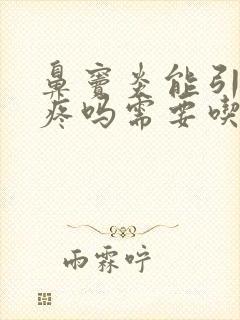 鼻窦炎能引
疼吗需要喫
雨霖咛